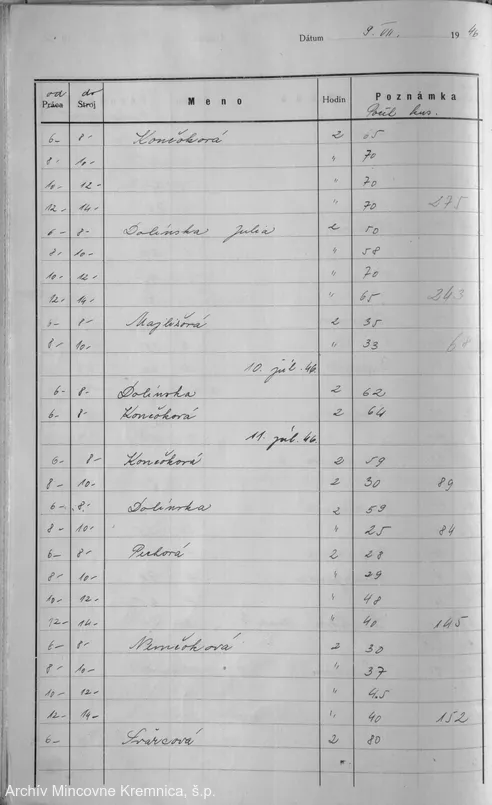 Dátum 9. VII. 1946
od do
Práca Stroj Meno Hodin Poznámka
kus.
6- 8- Končoková 2 65
8- 10- " 70
10- 12- " 70
12- 14- " 70 275
6- 8- Dolinska Julia 2 50
8- 10- " 58
10- 12- " 70
12- 14- " 65 243
6- 8- 2 35
8- 10- " 33 68
10. júl. 46.
6- 8- Dolinska 2 62
6- 8- Končoková 2 64
11. júl. 46.
6- 8- Končoková 2 59
8- 10- 2 30 89
6- 8- Dolinska 2 59
8- 10- " 25 84
6- 8- 2 28
8- 10- " 29
10- 12- " 48
12- 14- " 40 145
6- 8- Nemčoková 2 30
8- 10- " 37
10- 12- " 45
12- 14- " 40 152
6- 2 80
Archív Mincovne Kremnica, š.p.